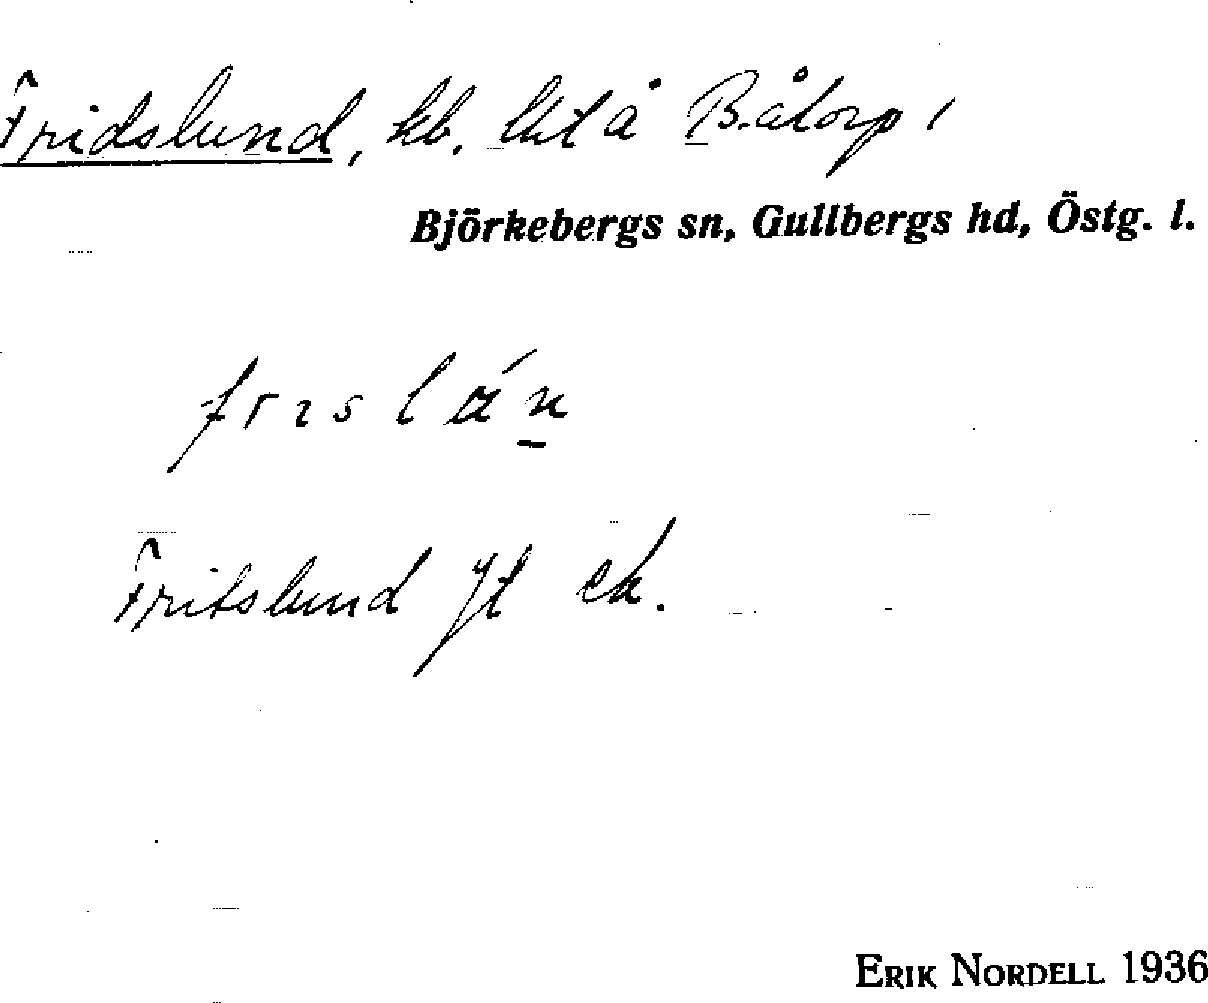 Fridslund, kb. lht å Båtorp i
Björkebergs sn, Gullbergs hd, Östg. l.
Fritslund Jt ek.
ERIK NORDELL 1936